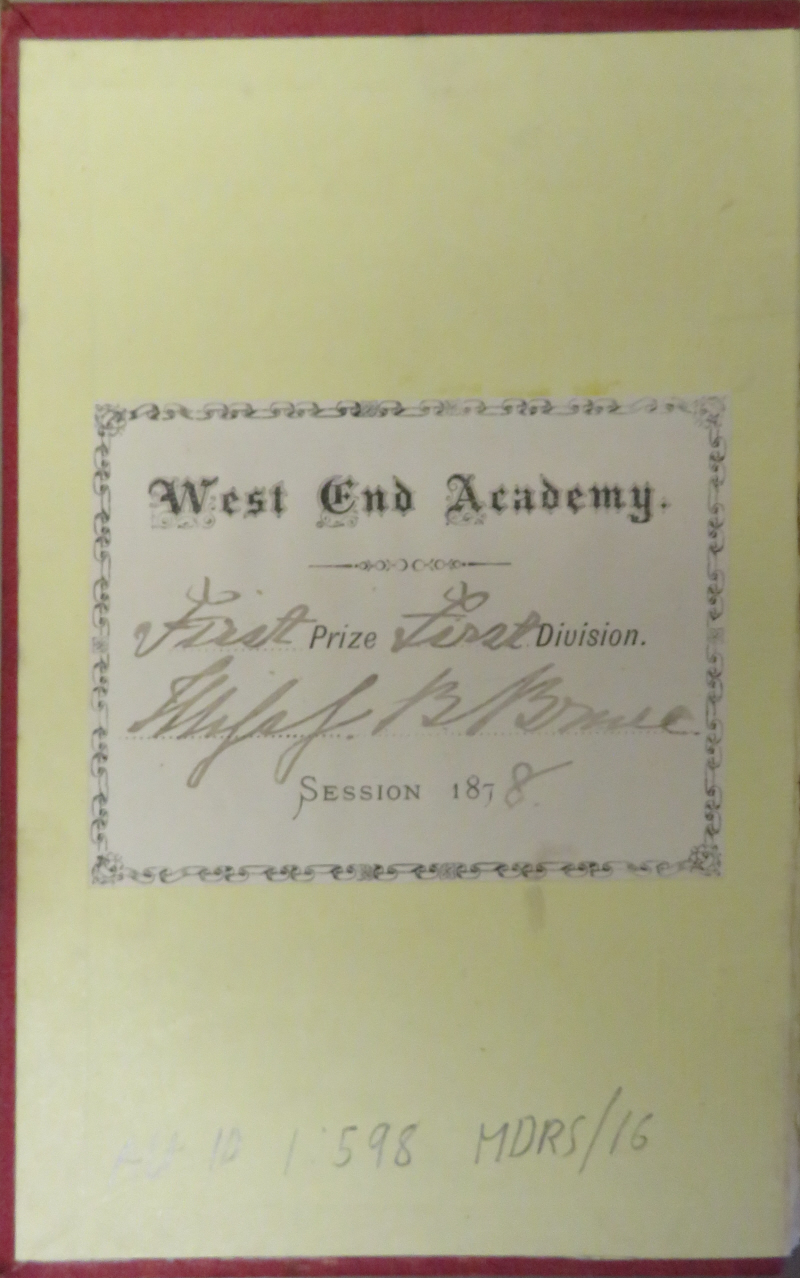 West End Academy.
First Prize First Division.
B. Bruce
Session 1878.
1598 MDRS/16